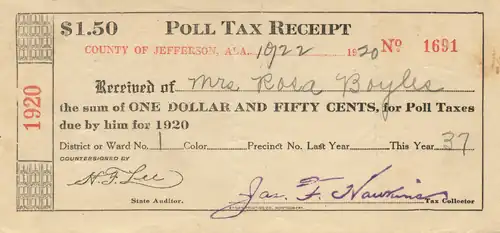 $1.50 POLL TAX RECEIPT
COUNTY OF JEFFERSON, ALA. 1922 1920 No 1691
1920
Received of Mrs. Rosa Boyles
the sum of ONE DOLLAR AND FIFTY CENTS, for Poll Taxes
due by him for 1920
District or Ward No. 1 Color Precinct No. Last Year This Year 37
COUNTERSIGNED BY
H. F. Lee Jas. F. Hawkins
State Auditor. Tax Collector